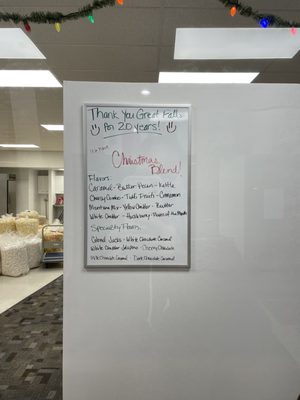 Thank You Great Falls
for 20 years!
Christmas
Blend!
Flavors:
Caramel - Butter Pecan - Kettle
Cheesy Combo - Tutti Fruiti - Cinnamon
Montana Mix - Yellow Cheddar - Butter
White Cheddar - Huckleberry - Flavor of the Month
Specialty Flavors:
Colored Jacks - White Chocolate Caramel
White Cheddar Jalapeno - Cherry Chocolate
Milk Chocolate Caramel Dark Chocolate Caramel